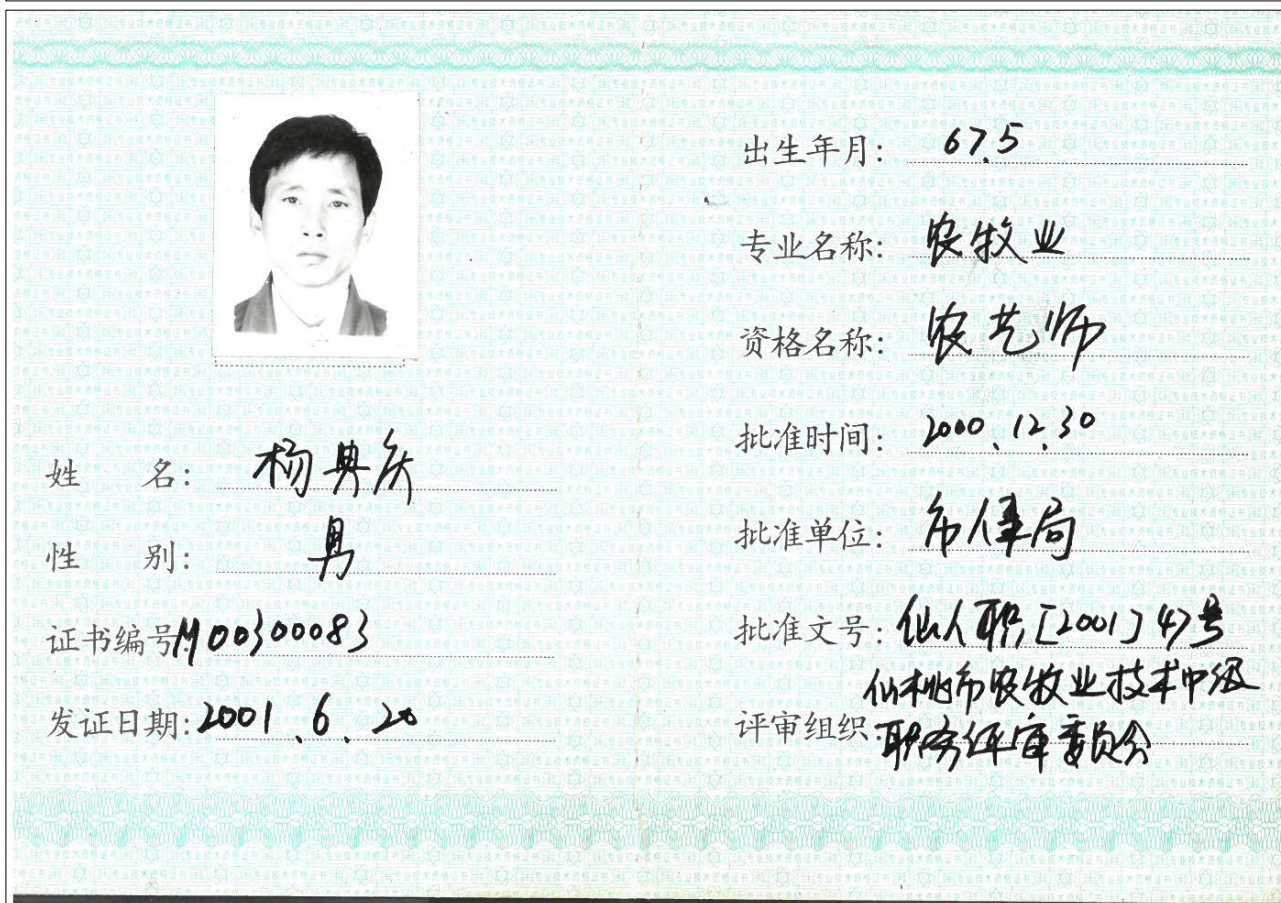 姓 名: 杨典兵
性 别: 男
证书编号M00300083
发证日期:2001.6.20
出生年月: 67.5
专业名称: 农牧业
资格名称: 农艺师
批准时间: 2000.12.30
批准单位:
批准文号: 仙人职[2001]47号
仙桃市农牧业技术中级
评审组织:职务评审委员会